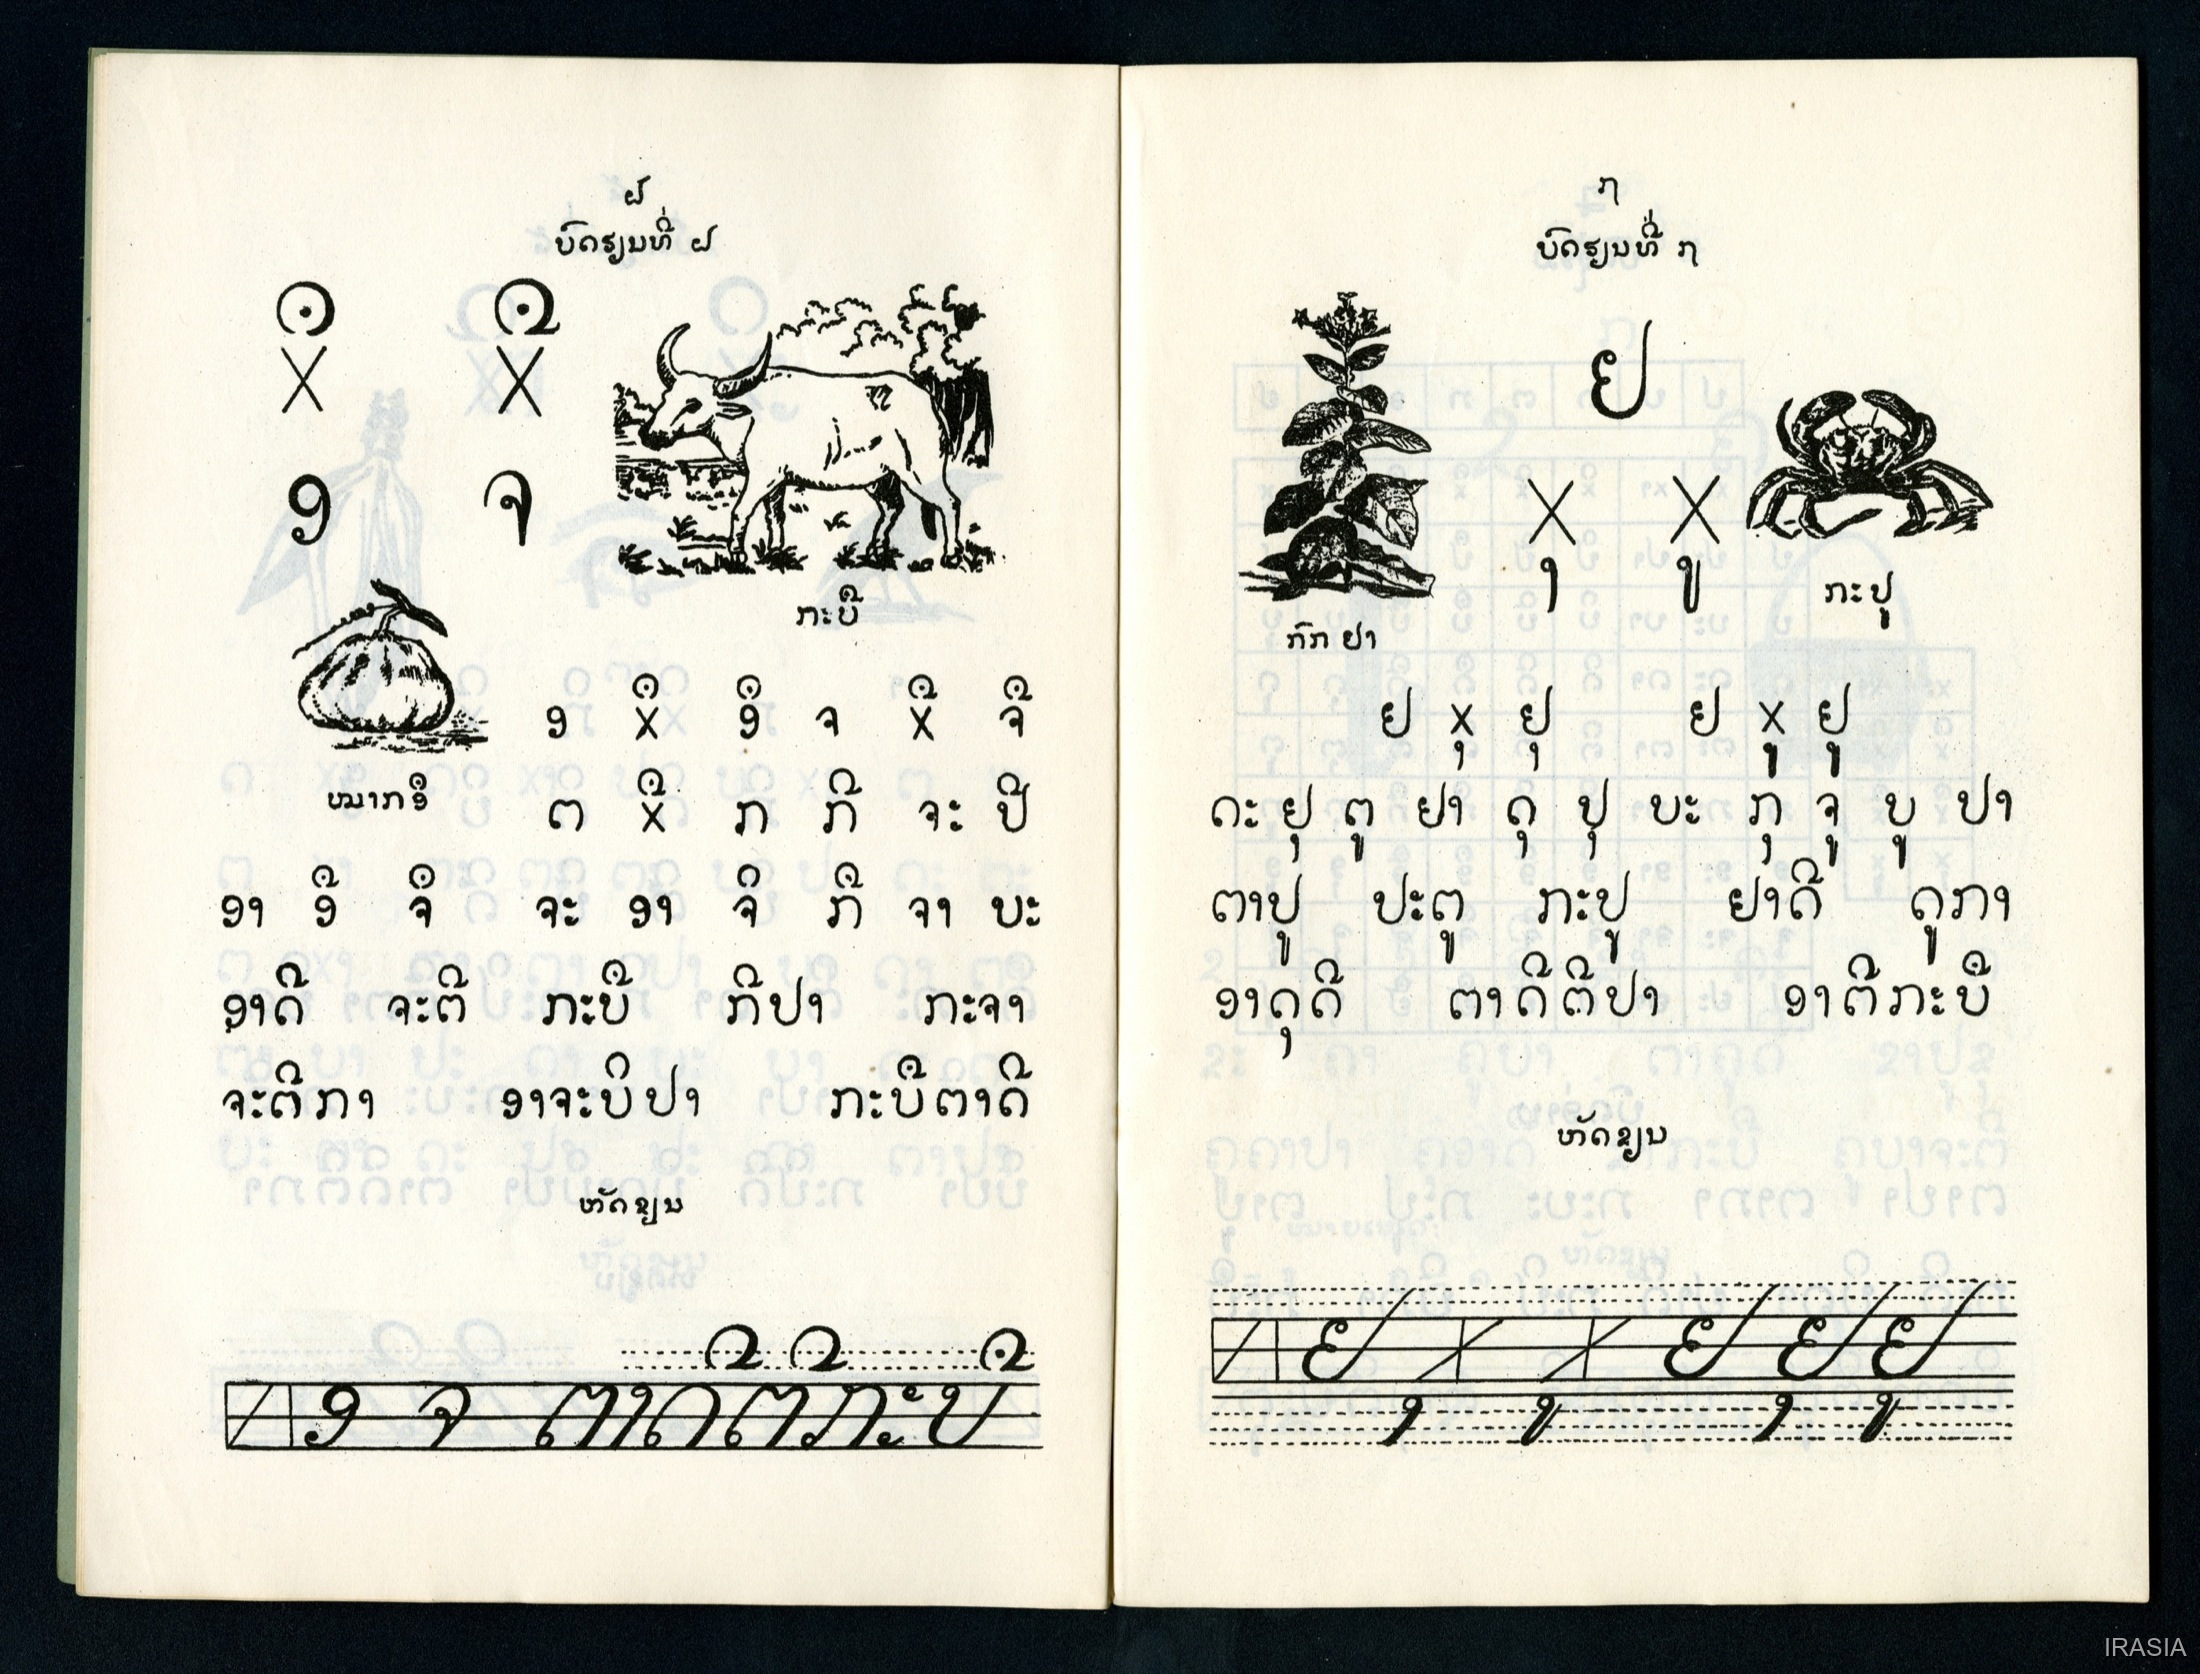 ໖
ບົດຮຽນທີ່ ໖
Xຶ Xື
ອ ຈ
ກະບື
ໝາກອຶ
ອ Xຶ ອຶ ຈ Xື ຈື
ຕ Xື ກ ກີ ຈະ ປີ
ອາ ອື ຈຶ ຈະ ອາ ຈຶ ກື ຈາ ບະ
ອາດີ ຈະຕີ ກະບື ກີປາ ກະຈາ
ຈະຕີກາ ອາຈະບິປາ ກະບືຕາດີ
ຫັດຂຽນ
ອ ຈ ຕາດີຕີກະບື
໗
ບົດຮຽນທີ່ ໗
ຢ
Xຸ Xູ
ກະປູ
ກົກ ຢາ
ຢ Xຸ ຢຸ ຢ Xູ ຢູ
ດະ ຢຸ ຕູ ຢາ ດຸ ປຸ ບະ ກຸ ຈູ ບູ ປາ
ຕາປູ ປະຕູ ກະປູ ຢາດີ ດູກາ
ອາດຸດີ ຕາດີຕີປາ ອາຕີກະບື
ຫັດຂຽນ
ຢ Xຸ Xູ ຢ ຢຸ ຢູ
IRASIA